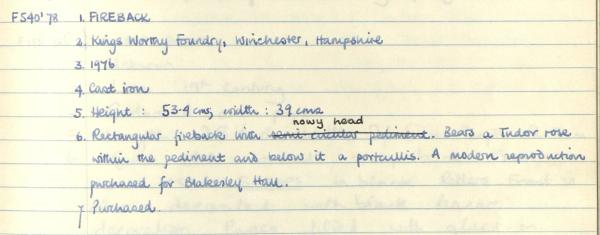 FS40'78 1. FIREBACK
2. Kings Worthy Foundry, Winchester, Hampshire
3. 1976
4. Cast iron
5. Height : 53.4 cms, width : 39 cms
nowy head
6. Rectangular fireback with semi-circular pediment. Bears a Tudor rose
within the pediment and below it a portcullis. A modern reproduction
purchased for Blakesley Hall.
7. Purchased.